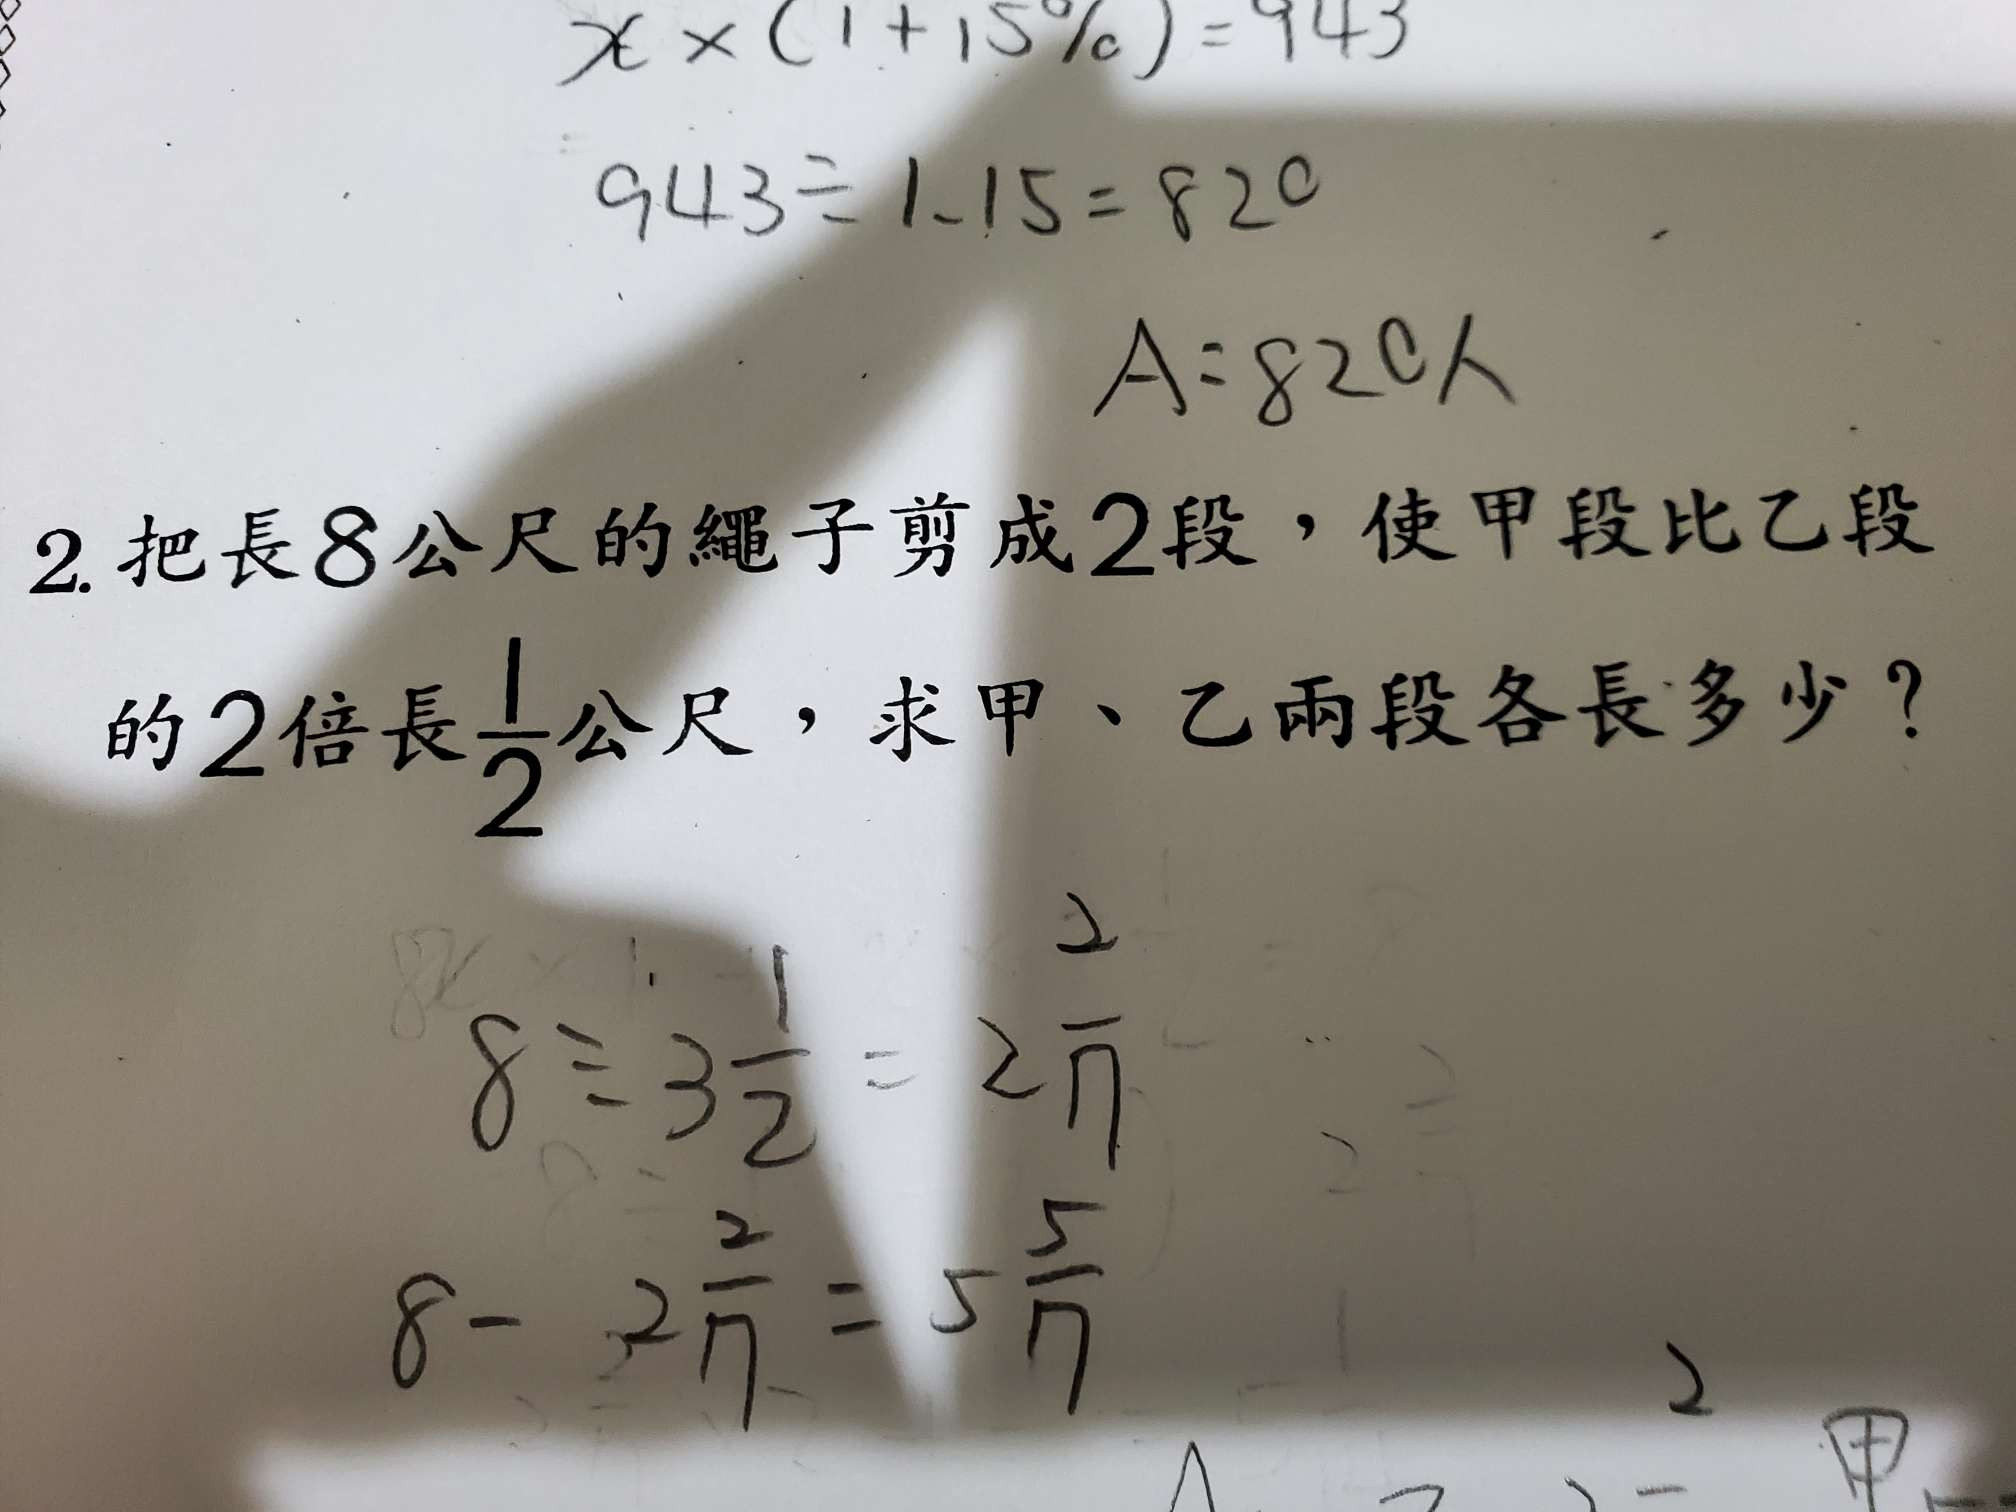 x × (1 + 15%) = 943
943 ÷ 1.15 = 820
A = 820人
2. 把長8公尺的繩子剪成2段，使甲段比乙段
的2倍長1/2公尺，求甲、乙兩段各長多少？
8 ÷ 3 1/2 = 2 2/7
8 - 2 2/7 = 5 5/7
2
甲